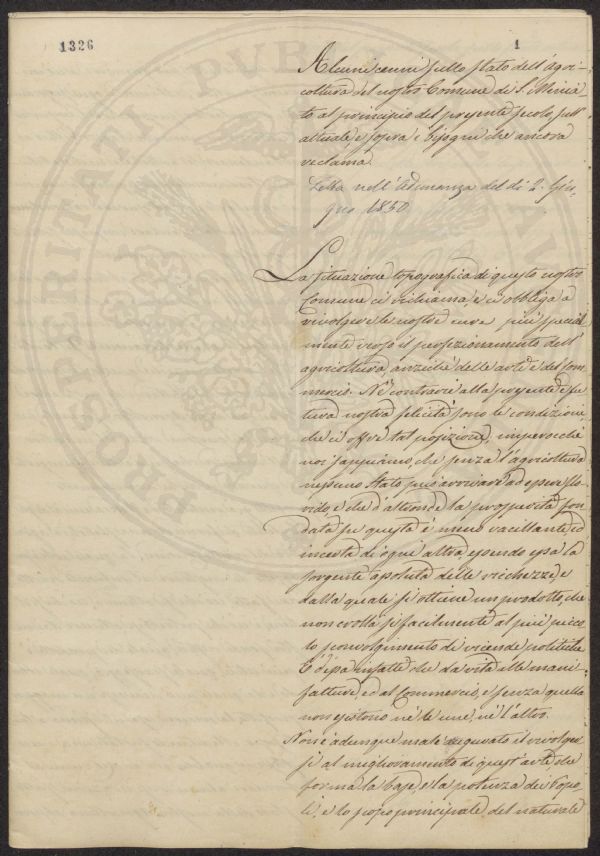 1326
1
Alcuni cenni sullo stato dell'agri-
coltura del nostro Comune di S. Minia-
to al principio del presente secolo sull'
attuale e sopra i bisogni che ancora
reclama.
Letta nell'Adunanza del dì 2. Giu-
gno 1850.
La situazione topografica di questo nostro
Comune ci richiama, e ci obbliga a
rivolgere le nostre cure più special-
mente verso il perfezionamento dell'
agricoltura, anziché delle arti e del com-
mercio. Né contrarie alla presente e fu-
tura nostra felicità sono le condizioni,
che ci offre tal posizione, imperocché
noi sappiamo, che senza l'agricoltura
nessuno Stato può arrivare ad essere flo-
rido, e che d'altronde la prosperità fon-
data su questa è meno vacillante ed
incerta di ogni altra, essendo essa la
sorgente assoluta delle ricchezze, e
dalla quale si ottiene un prodotto, che
non crolla sì facilmente al più picco-
lo sconvolgimento di vicende politiche
È dessa infatti che dà vita alle mani-
fatture ed al Commercio, e senza quella
non esistono né le une, né l'altro.
Non è adunque male adeguato il rivolger-
si al miglioramento di quest'arte che
forma la base, e la potenza dei Popo-
li, e lo scopo principale del naturale
PROSPERITATI PUBLICAE